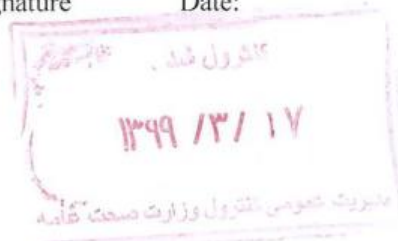 gnature Date:
کنترول شد .
۱۳۹۹ / ۳ / ۱۷
مدیریت عمومی کنترول وزارت صحت عامه